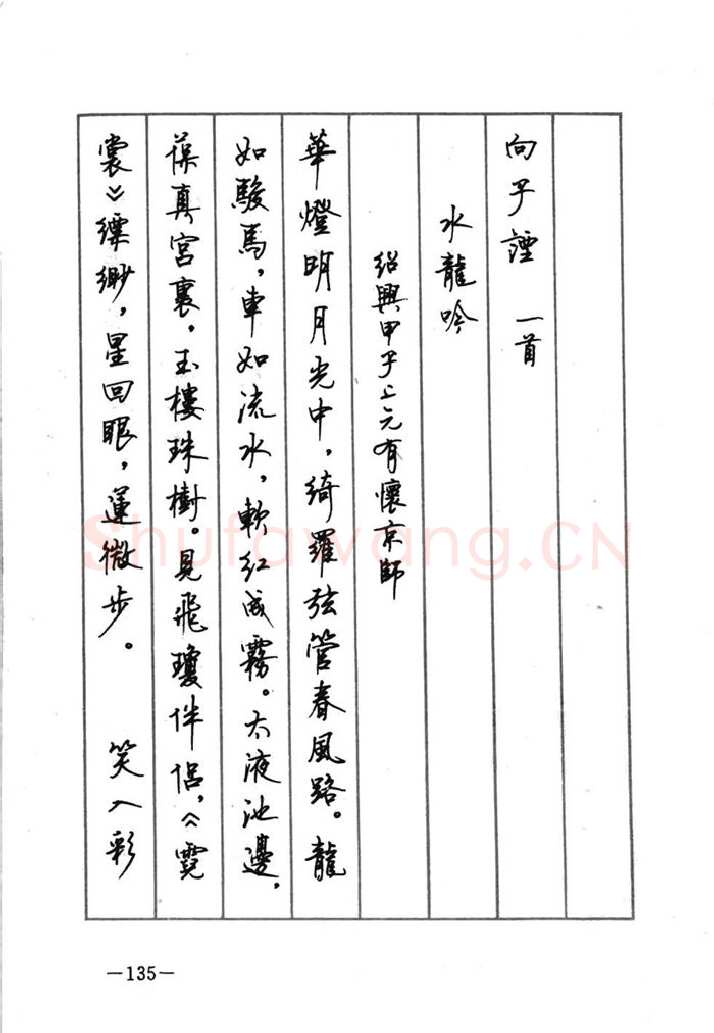 向子諲 一首
水龍吟
紹興甲子上元有懷京師
華燈明月光中，綺羅弦管春風路。龍
如駿馬，車如流水，軟紅成霧。太液池邊，
葆真宮裏，玉樓珠樹。見飛瓊伴侶，《霓
裳》縹緲，星回眼，蓮微步。 笑入彩
Shufawang.CN
—135—